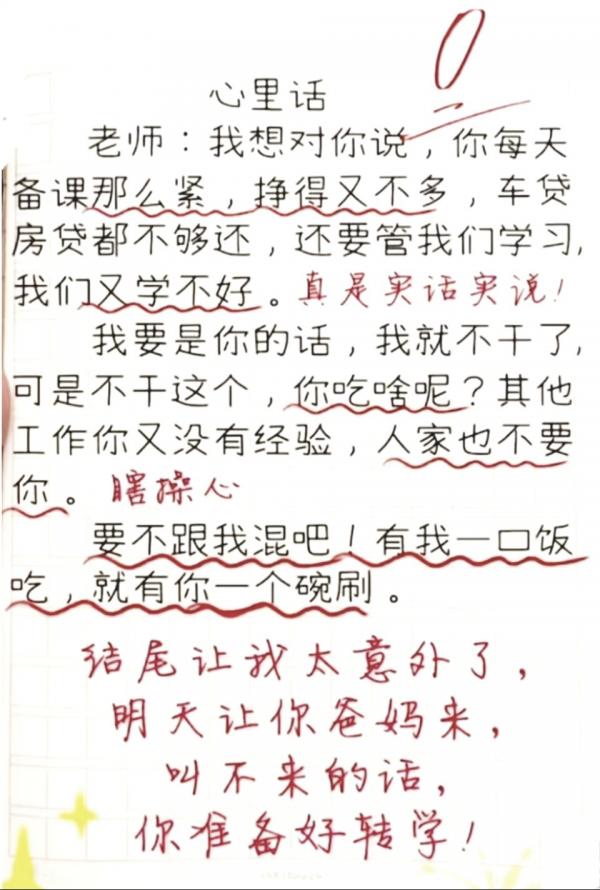 0
心里话
老师：我想对你说，你每天
备课那么紧，挣得又不多，车贷
房贷都不够还，还要管我们学习，
我们又学不好。真是实话实说！
我要是你的话，我就不干了，
可是不干这个，你吃啥呢？其他
工作你又没有经验，人家也不要
你。瞎操心
要不跟我混吧！有我一口饭
吃，就有你一个碗刷。
结尾让我太意外了，
明天让你爸妈来，
叫不来的话，
你准备好转学！